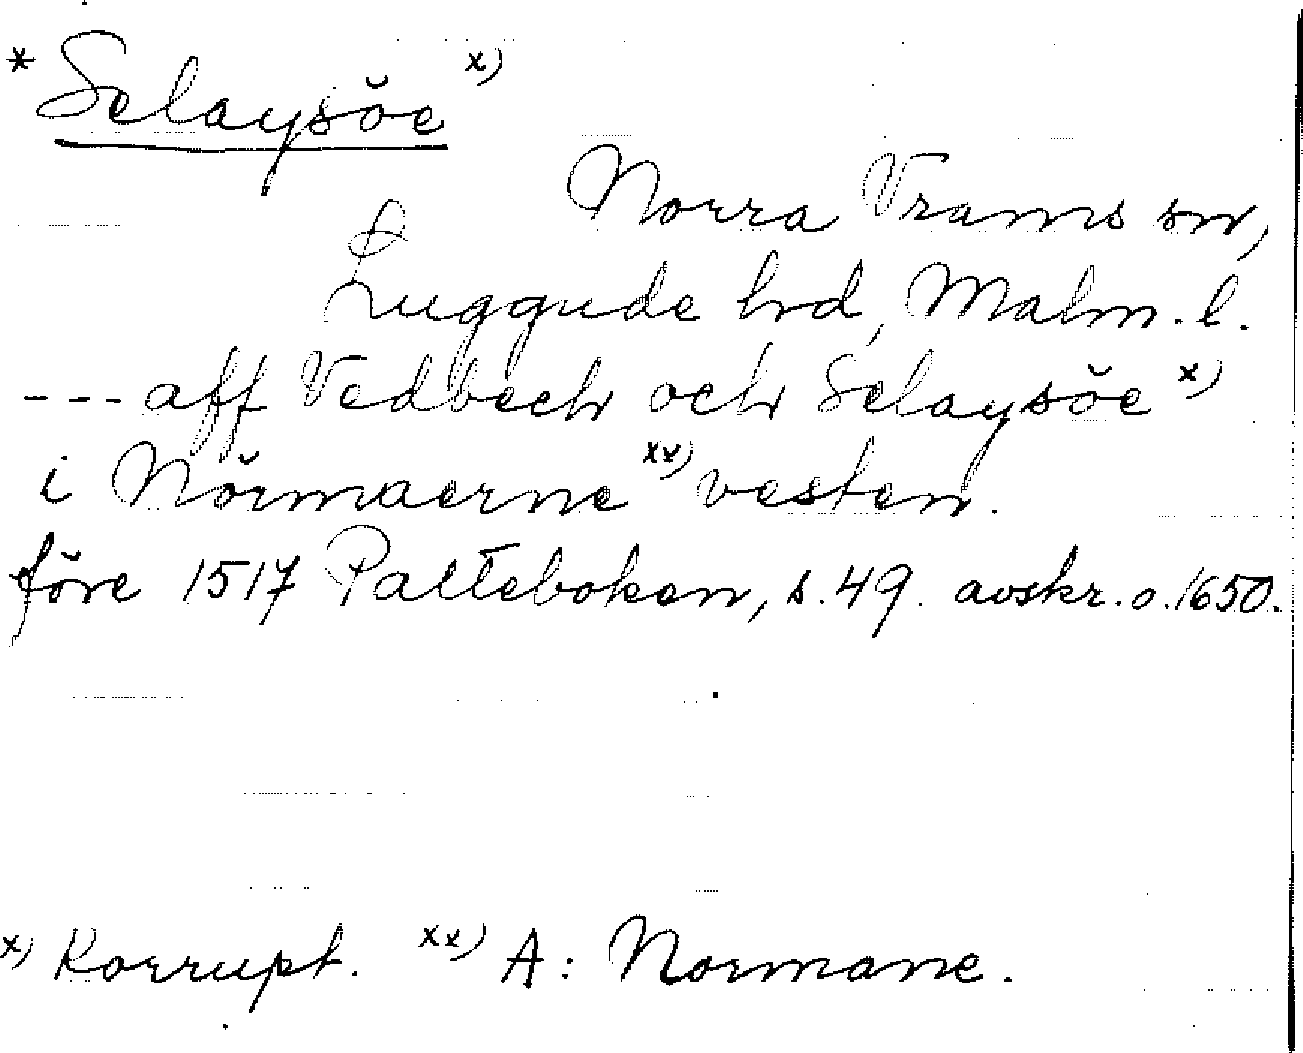 * Selaysŏe x)
Norra Vrams sn,
Luggude hd, Malm. l.
--- aff Vedbech och Selaysŏe x)
i Nŏrmaerne xx) vesten.
före 1517 Palteboken, s. 49. avskr. o. 1650.
x) Korrupt. xx) A: Normane.